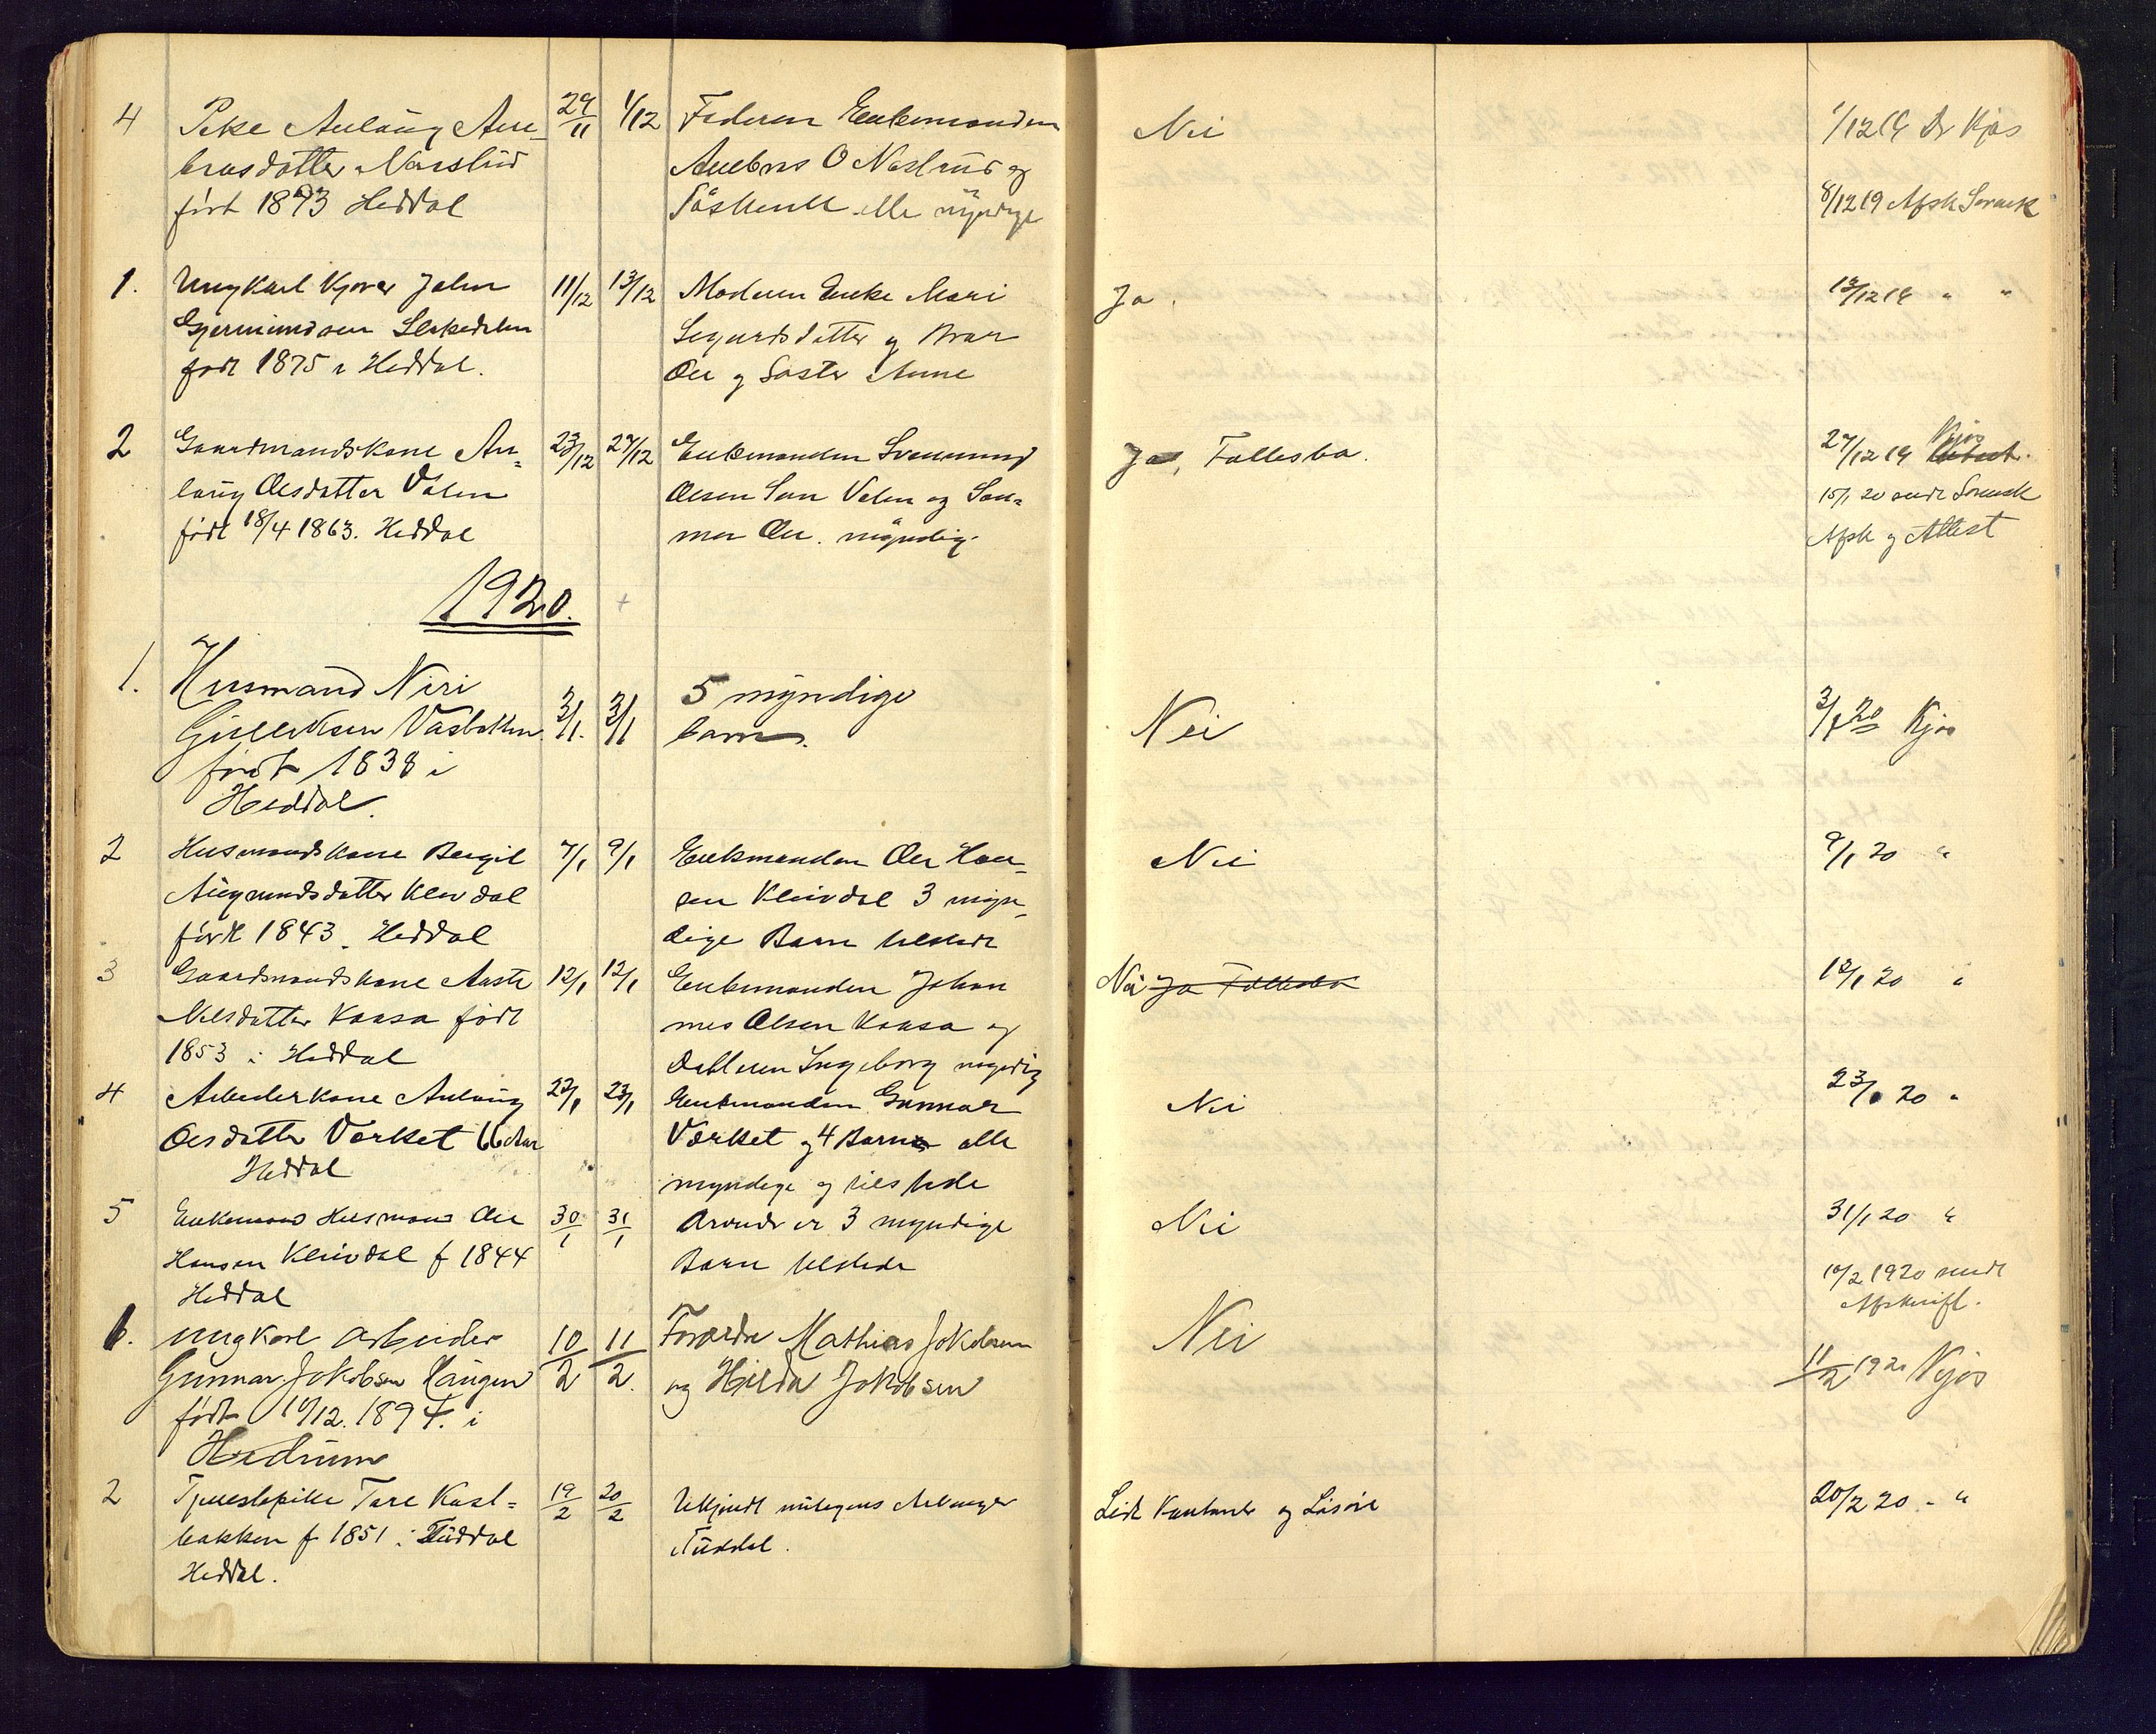 4 Pike Aulaug Am- 29/11 1/12 Faderen Enkemanden Nei 1/12 19 Dr Kjos
brosdatter Narstud Ambros O Nastrud og
født 1893 Heddal Søskende alle myndige 8/12 19 Afsk Sorensk
1. Ungkarl Gjermundsen 11/12 13/12 Moderen Enke Mari Ja. 13/12 19 " "
født 1875 i Heddal. Sigurdsdatter og Bror
Ole og Søster Anne
2 Gaardmandskone An- 23/12 27/12 Enkemanden Svenund Ja, Fællesbo. 27/12 19 Kjos
laug Olesdatter Valen Olsen Valen og Søn-
født 18/4 1863. Heddal men Ole. myndig. 15/1 20 sendt Sorensk
Afsk og Attest
1920.
1. Husmand Niri 3/1. 3/1 5 myndige Nei 3/1 20 Kjos
Gislleksen Vasbakken barn.
født 1838 i
Heddal.
2 Husmandskone Bergit 7/1 9/1 Enkemanden Ole Han- Nei 9/1 20 "
Augmundsdatter Kleivdal sen Kleivdal 3 myn-
født 1843. Heddal dige Barn tilstede
3 Gaardmandskone Aaste 12/1 12/1 Enkemanden Johan Nei Ja Fællesbo 12/1 20 "
Nilsdatter Kaasa født nes Olsen Kaasa og
1853 i Heddal datteren Ingeborg myndig
4 Arbeiderkone Aulaug 22/1 23/1 Enkemanden Gunnar Nei 23/1 20 "
Olesdatter Værket 66 Aar Værket og 4 Barn alle
Heddal myndige og tilstede
5 Enkemand Husmand Ole 30/1 31/1 Arvinder er 3 myndige Nei 31/1 20 "
Hansen Kleivdal f 1844 Barn tilstede
Heddal 10/2 1920 sendt
Afskrift.
6. Ungkarl arbeider 10/2 11/2. Foreldre Mathias Jokobsen Nei 11/2 1920 Kjos
Gunnar Jokobsen Haugen og Hilda Jokobsen
født 1894. i
Hedrum
2 Tjenestepike Tore Kasl= 19/2 20/2 Ukjendt Arvinger Leit Kontant og Løsøre 20/2 20 - "
bakken f 1851 i Tuddal Tuddal.
Heddal.